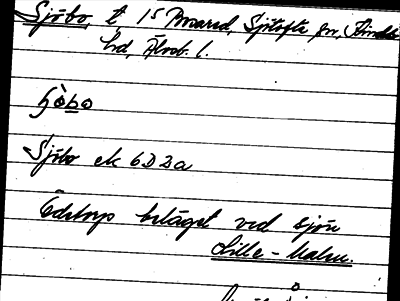 Sjöbo, t 15 Rosared, Sjötofta sn, Kinds
hd, Älvsb. l.
Sjöbo ek 6D2a
Edstorp beläget vid sjön
Lille-Malen.